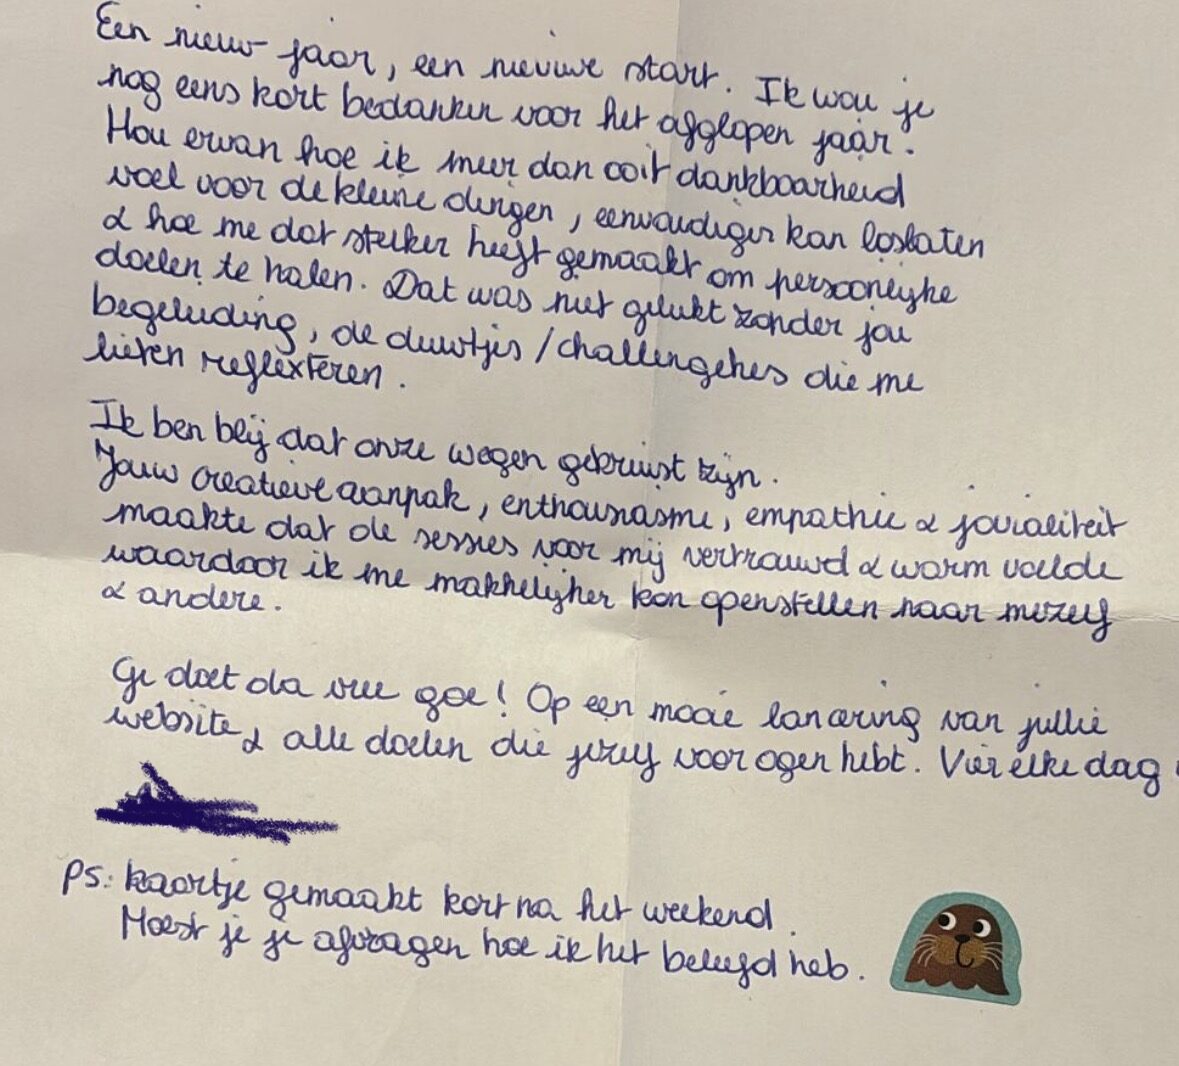 Een nieuw jaar, een nieuwe start. Ik wou je
nog eens kort bedanken voor het afgelopen jaar.
Hou ervan hoe ik meer dan ooit dankbaarheid
voel voor de kleine dingen, eenvoudiger kan loslaten
& hoe me dat sterker heeft gemaakt om persoonlijke
doelen te halen. Dat was niet gelukt zonder jou
begeleiding, de duwtjes / challengehes die me
lieten reflexteren.
Ik ben blij dat onze wegen gekruist zijn.
Jouw creatieve aanpak, enthousiasme, empathie & jovialiteit
maakte dat de sessies voor mij vertrouwd & warm voelde
waardoor ik me makkelijker kon openstellen naar mezelf
& andere.
Ge doet da vree goe! Op een mooie lancering van jullie
website & alle doelen die jezelf voor ogen hebt. Vier elke dag
PS: kaartje gemaakt kort na het weekend.
Moest je je afvragen hoe ik het beleefd heb.